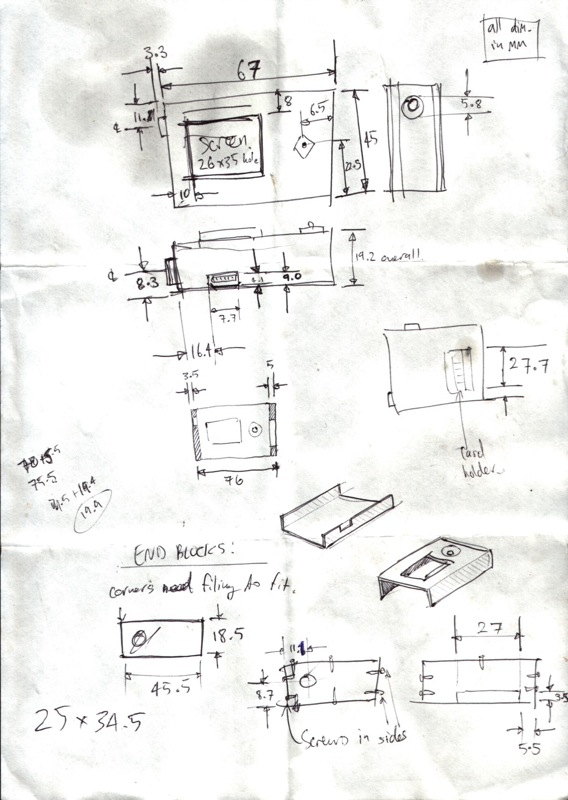 all dim.
in MM
3.3
67
11.1
8
6.5
Screen.
26 x 35 hole
22.5
45
10
5.8
19.2 overall
8.3
9.0
7.7
16.4
27.7
Card
holder.
3.5
5
76
75.5
19.9
END BLOCKS:
corners need filing to fit.
18.5
45.5
25 x 34.5
8.7
Screws in sides
27
3.5
5.5